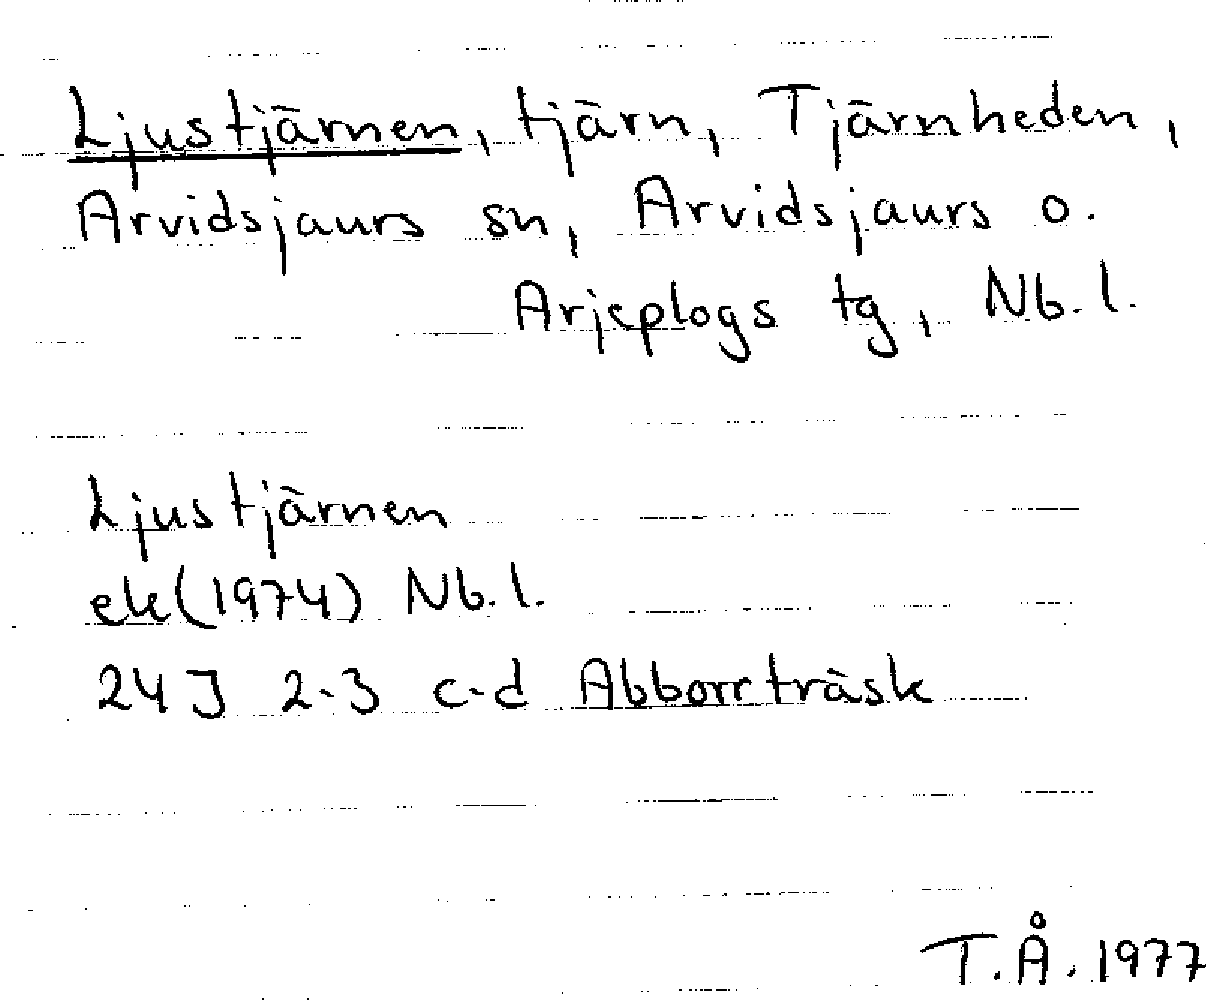 Ljustjärnen, tjärn, Tjärnheden,
Arvidsjaurs sn, Arvidsjaurs o.
Arjeplogs tg, Nb. l.
Ljustjärnen
ek(1974) Nb. l.
24J 2-3 c-d Abborrträsk
T.Å. 1977